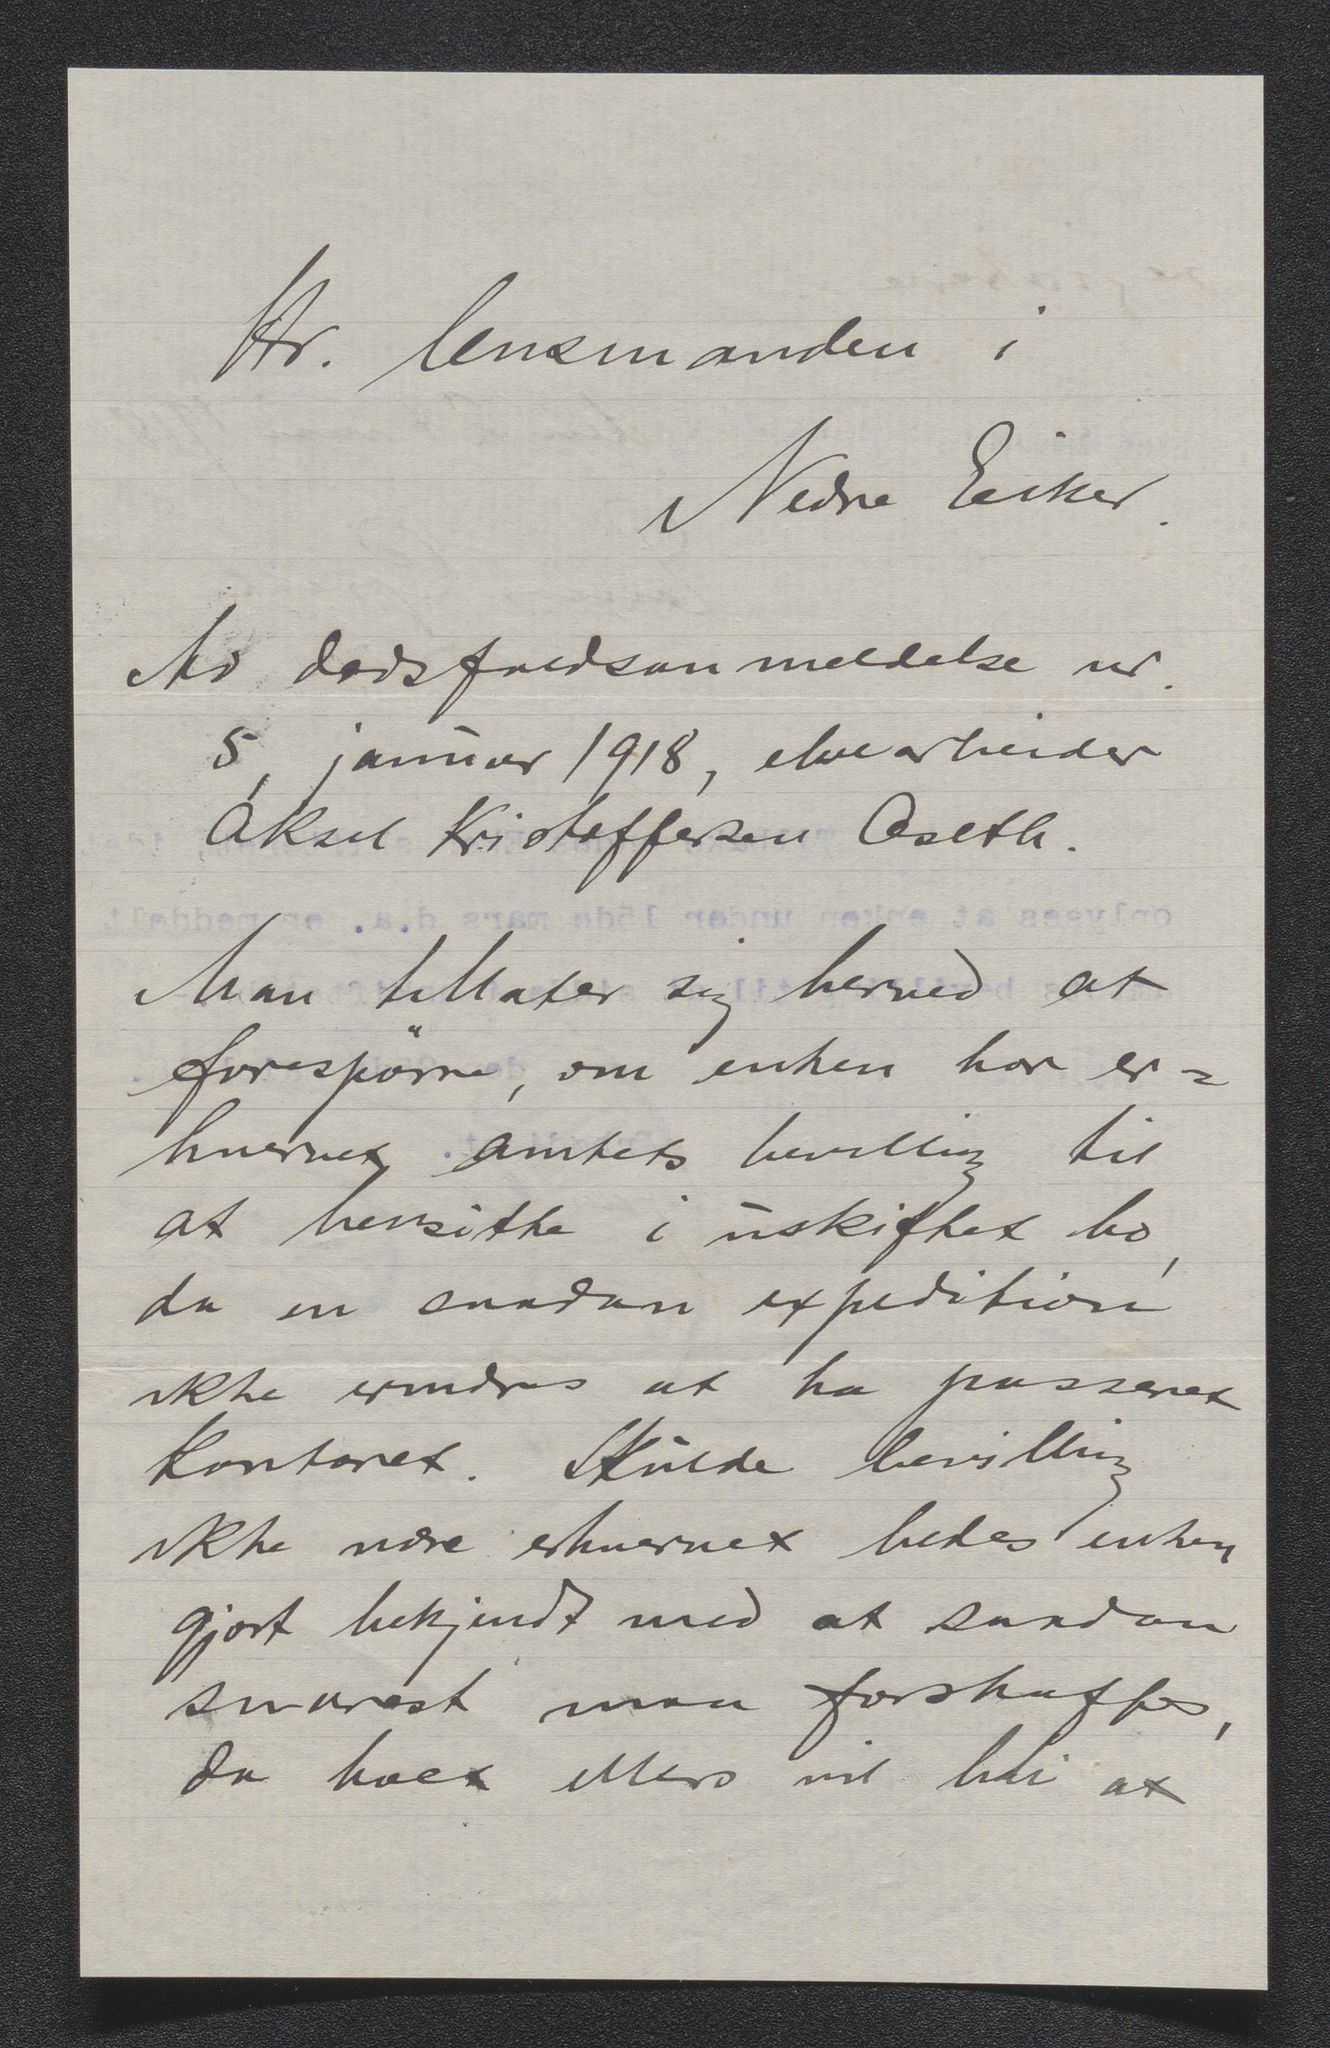 Hr. lensmanden i
Nedre Eiker.
Av dødsfaldsanmeldelse nr.
5, januar 1918, elvearbeider
Aksel Kristoffersen Aaseth.
Man tillater sig herved at
forespörre, om enken har er-
hvervet amtets bevilling til
at hensitte i uskiftet bo,
da en saadan expedition
ikke erindres at ha passeret
kontoret. Skulde bevilling
ikke være erhvervet bedes enken
gjort bekjendt med at saadan
snarest maa forskaffes,
da boet ellers vil bli at